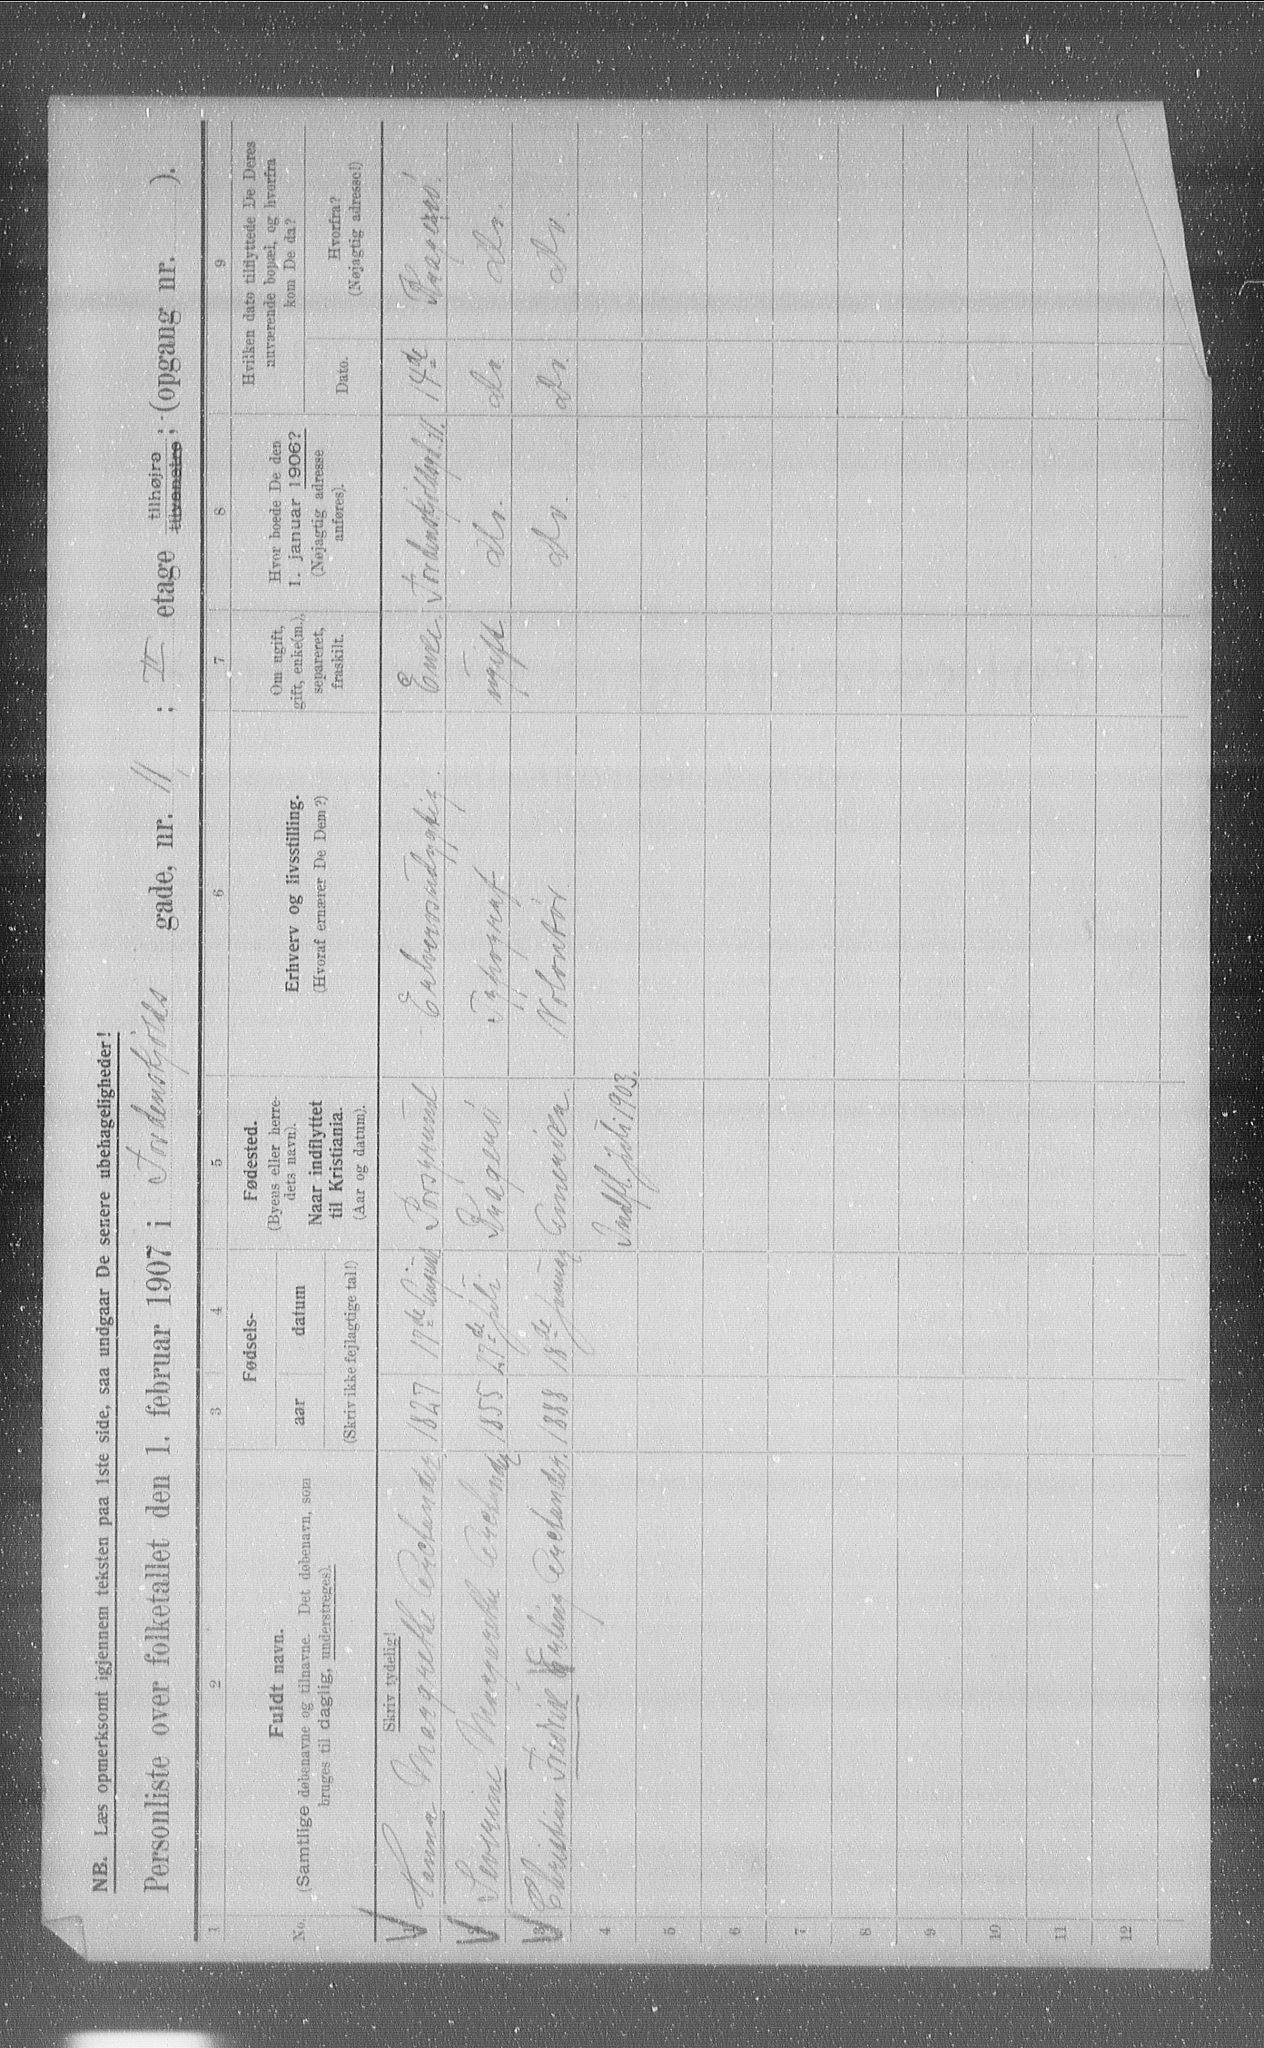 NB. Læs opmerksomt igjennem teksten paa 1ste side, saa undgaar De senere ubehageligheder!
Personliste over folketallet den 1. februar 1907 i Tordenskjolds gade, nr. 11 ; II etage tilhøjre tilvenstre ; (opgang nr. ).
1 2 3 4 5 6 7 8 9
No.
Fuldt navn.
(Samtlige døbenavne og tilnavne. Det døbenavn, som
bruges til daglig, understreges).
Fødsels-
aar datum
(Skriv ikke fejlagtige tal!)
Fødested.
(Byens eller herre-
dets navn).
Naar indflyttet
til Kristiania.
(Aar og datum).
Erhverv og livsstilling.
(Hvoraf ernærer De Dem?)
Om ugift,
gift, enke(m.),
separeret,
fraskilt.
Hvor boede De den
1. januar 1906?
(Nøjagtig adresse
anføres).
Hvilken dato tilflyttede De Deres
nuværende bopæl, og hvorfra
kom De da?
Dato.
Hvorfra?
(Nøjagtig adresse!)
Skriv tydelig!
1 Hanna Margrethe 1827 17de August Porsgrund Enke Tordenskjoldsgd. 11. 14de Kragerø.
2 Margarethe 1855 27de juli Kragerø Typograf ugift do. do. do.
3 Christian Fredrik 1888 18de januar Amerika Volontør do. do. do.
4 Indfl. juli 1903.
5
6
7
8
9
10
11
12